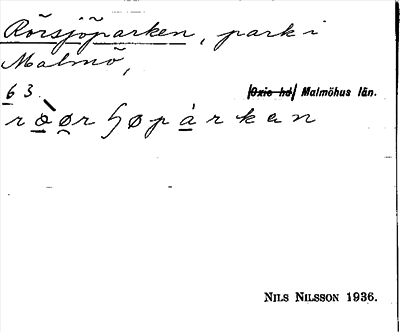 Rörsjöparken, park i
Malmö,
63.
|Oxie hd| Malmöhus län.
NILS NILSSON 1936.